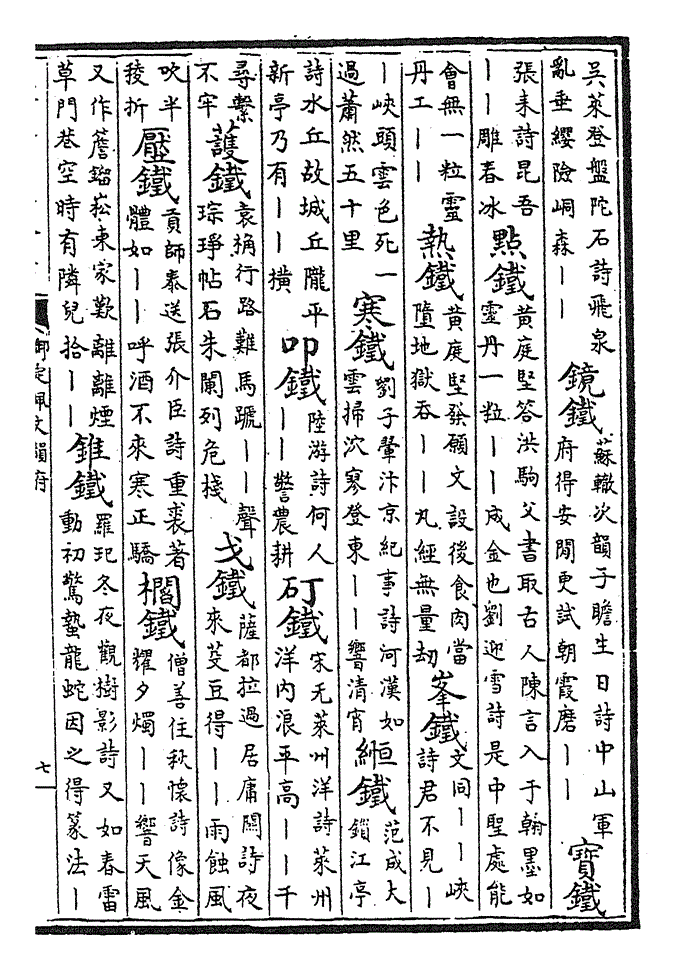 吳萊登盤陀石詩飛泉
亂垂纓險峒森｜｜
鏡鐵
蘇轍次韻子瞻生日詩中山軍
府得安閒更試朝霞磨｜｜
寳鐵
張耒詩昆吾
｜｜雕春冰
點鐵
黄庭堅答洪駒父書取古人陳言入于翰墨如
靈丹一粒｜｜成金也劉迎雪詩是中聖處能
會無一粒靈
丹工｜｜
熱鐵
黄庭堅發願文設後食肉當
墮地獄吞｜｜丸經無量劫
峯鐵
文同｜｜峽
詩君不見｜
｜峽頭雲色死一
過蕭然五十里
寒鐵
劉子翬汴京紀事詩河漢如
雲掃泬寥登東｜｜響清宵
絙鐵
范成大
鎖江亭
詩水丘故城丘隴平
新亭乃有｜｜横
叩鐵
陸游詩何人
｜｜警農耕
矴鐵
宋无萊州洋詩萊州
洋内浪平高｜｜千
尋繫
不牢
䕶鐵
袁桷行路難馬蹏｜｜聲
琮琤帖石朱闌列危棧
戈鐵
薩都拉過居庸關詩夜
來芟豆得｜｜雨蝕風
吹半
稜折
壓鐵
貢師泰送張介臣詩重裘著
體如｜｜呼酒不來寒正驕
櫩鐵
僧善住秋懷詩像金
耀夕燭｜｜響天風
又作簷鎦崧東家歎離離煙
草門巷空時有隣兒拾｜｜
錐鐵
羅玘冬夜觀樹影詩又如春雷
動初驚蟄龍蛇因之得篆法｜
御定佩文韻府
七一